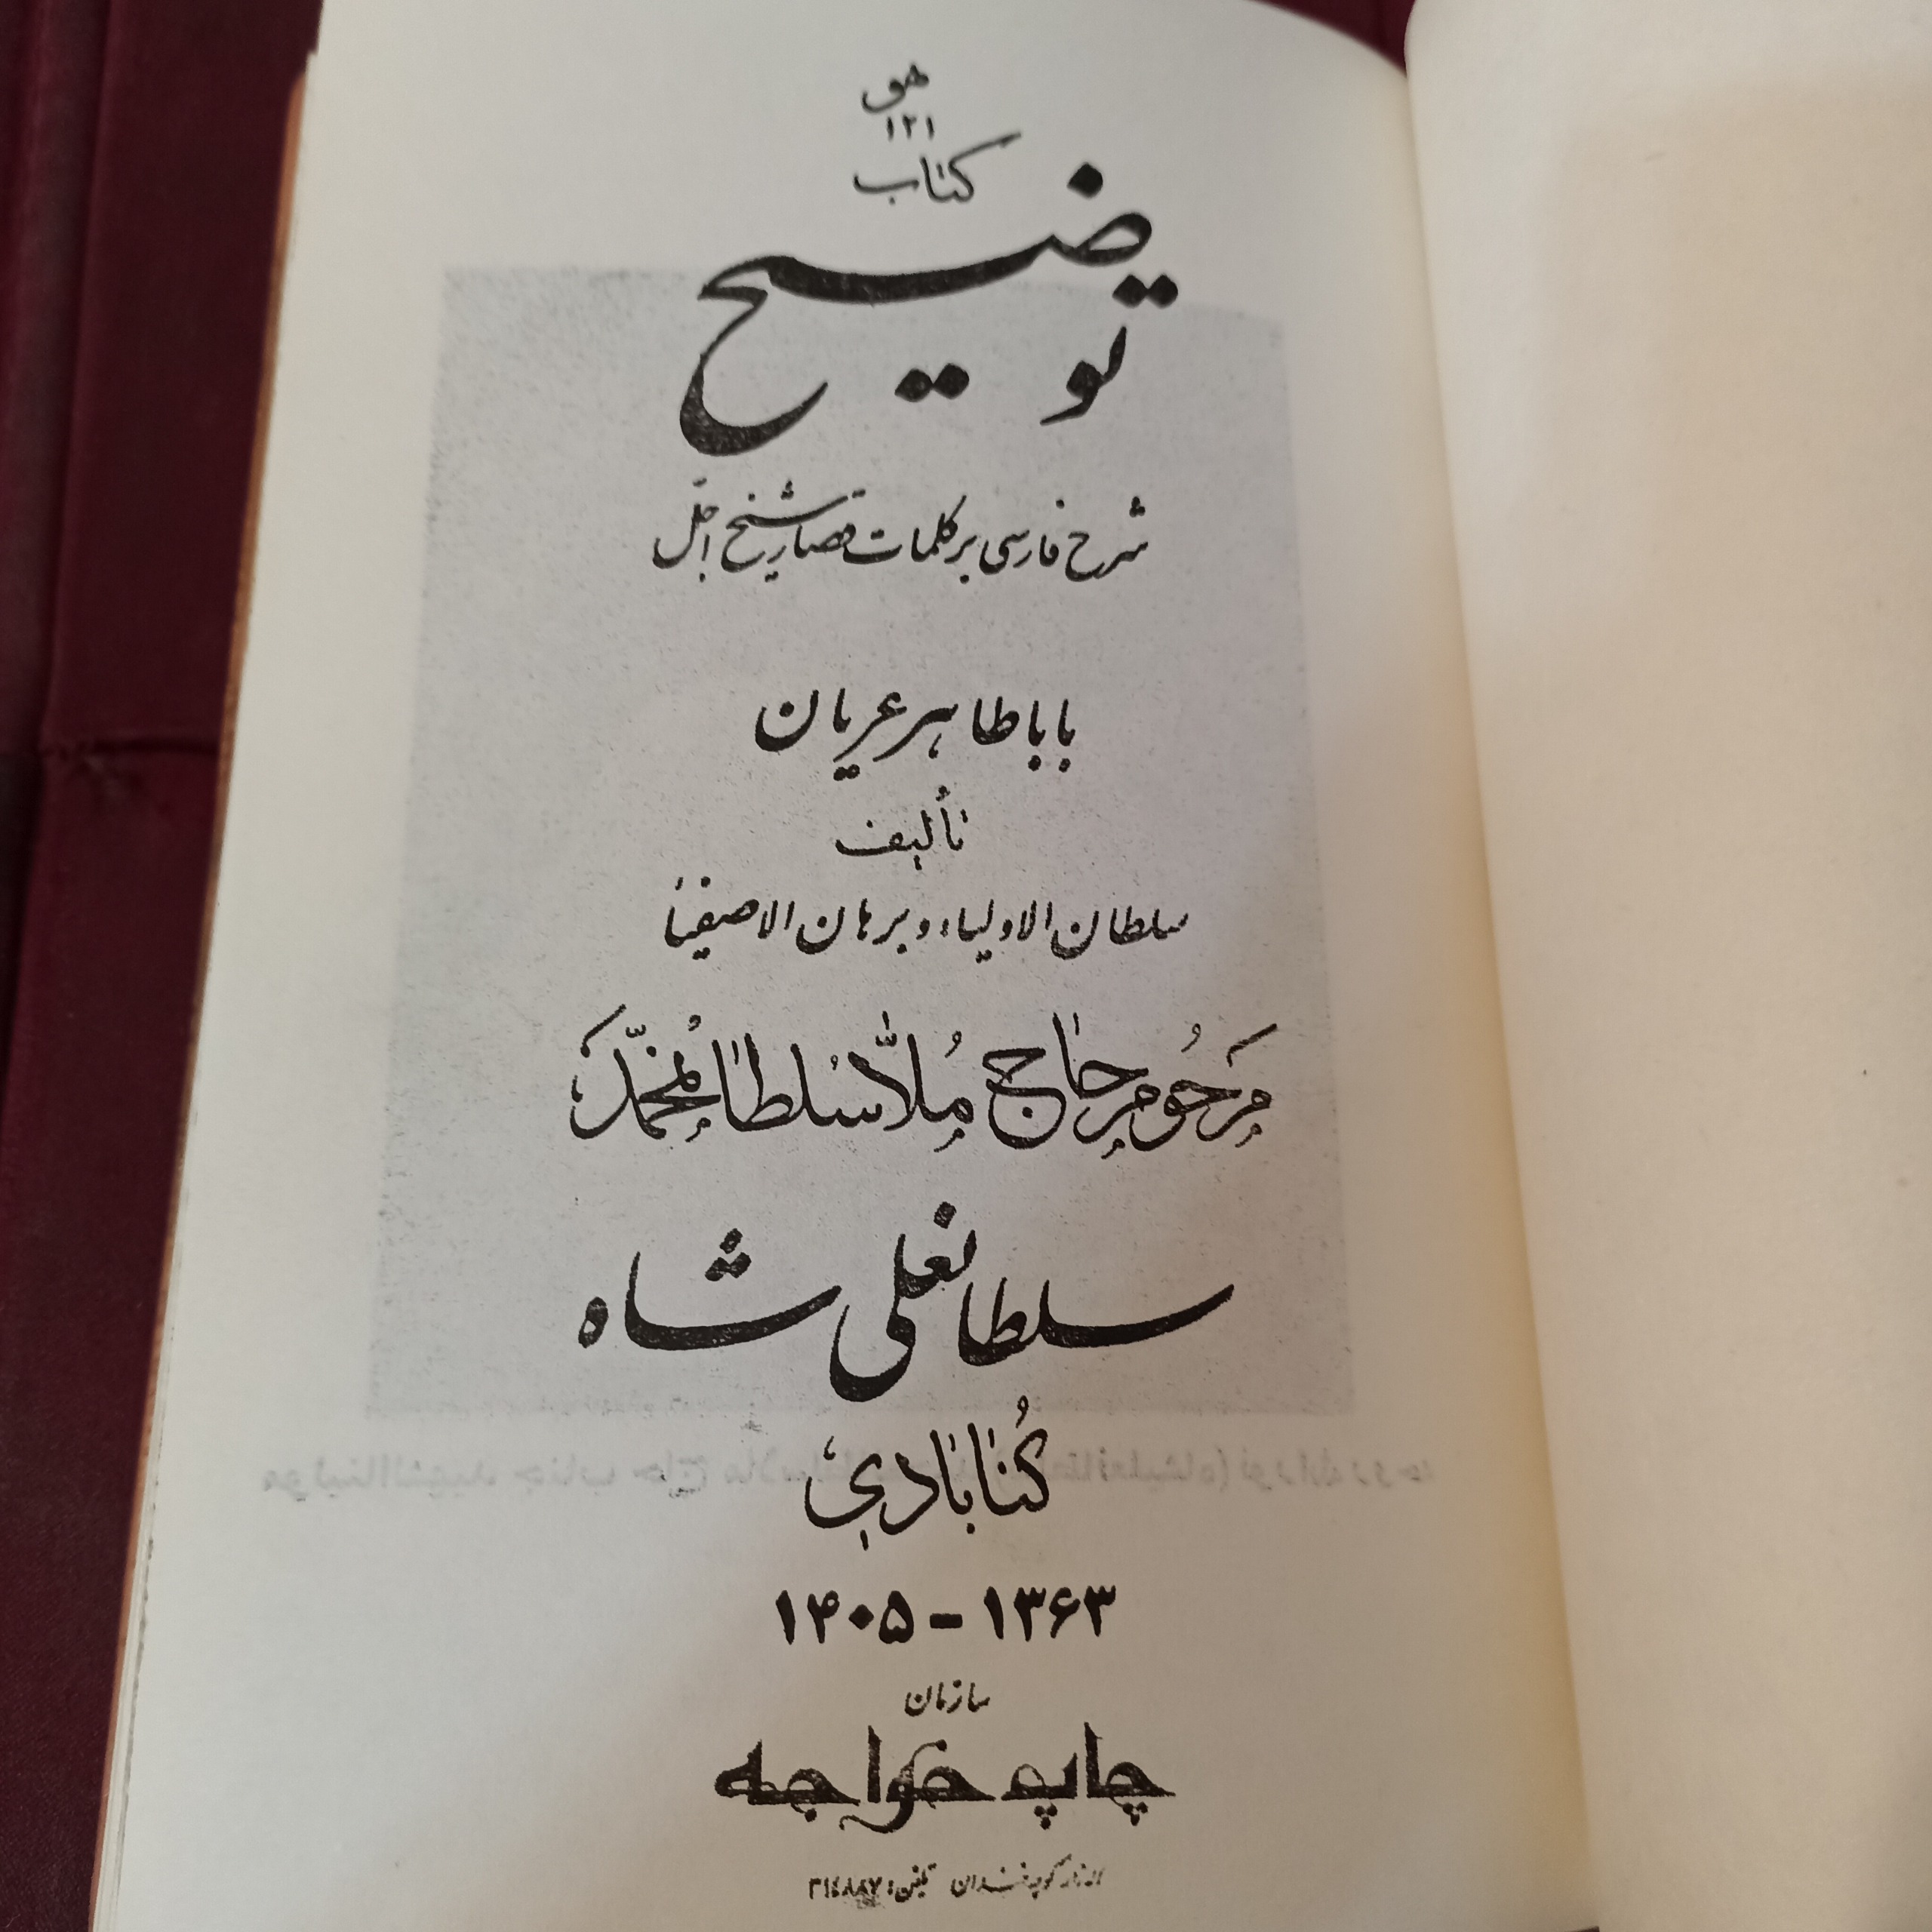 هو
۱۲۱
کتاب
توضیح
شرح فارسی بر کلمات قصار شیخ اجلّ
باباطاهر عریان
تألیف
سلطان الاولیاء و برهان الاصفیا
مَرحُوم حاج مُلّا سُلطانمُحمّد
سلطانعلی شاه
گُنابادی
۱۳۶۳ - ۱۴۰۵
سازمان
چاپ خواجه
لاله زار کوچه خندان تلفن: ۳۱۴۸۸۷